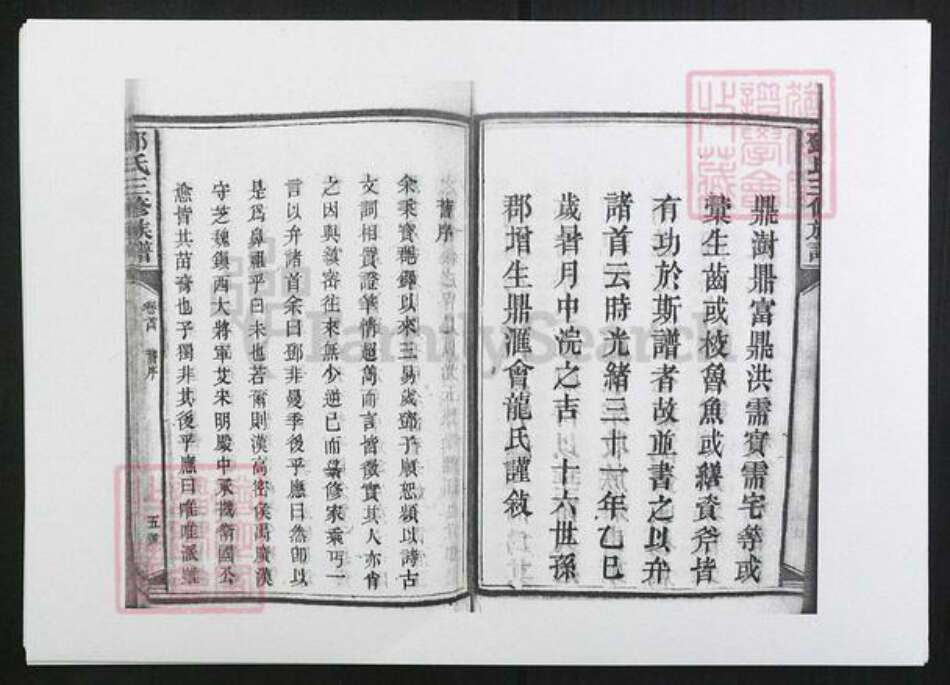 鼎澍鼎富鼎洪需實需宅等或
彙生齒或校魯魚或繕資斧皆
有功於斯譜者故並書之以弁
諸首云時光緒三十一年乙巳
歲暑月中浣之吉十六世孫
郡增生鼎滙會龍氏謹敘
舊序
余秉寶鄜鐸以來三易歲鄧子順恕類以詩古
文詞相質證華情超萬而言皆徵實其人亦肯
之因與縝密往來無少逆已而彙修家乘丐一
言以弁諸首余曰鄧非曼季後乎應曰然卽以
是爲鼻祖乎曰未也若爾則漢高密侯禹廣漢
守芝魏鎭西大將軍艾宋明嚴中承機衛國公
愈皆其苗裔也子獨非其後乎應曰唯唯派雖
鄧氏三修族譜
卷首
舊序
五
FamilySearch